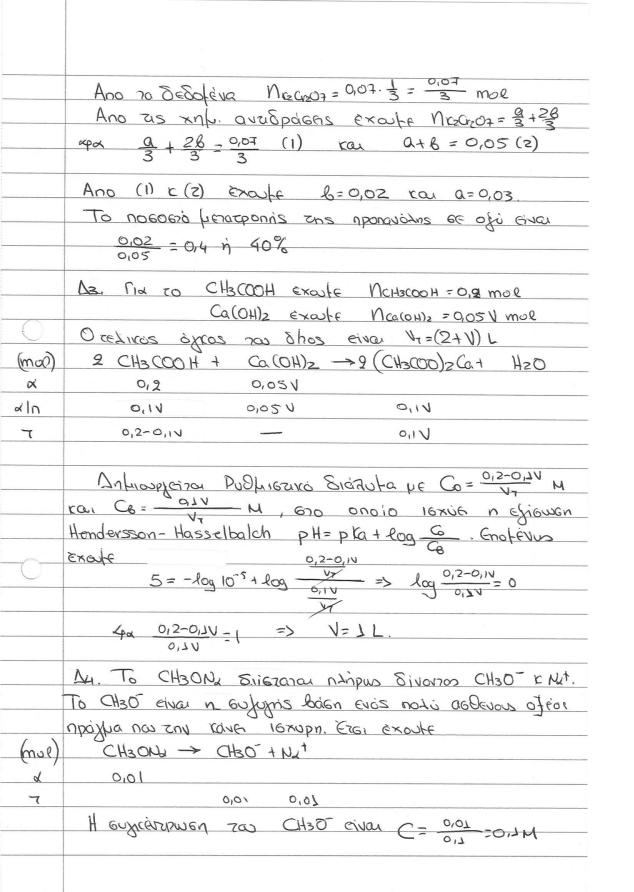 Απο το δεδομένα nK2Cr2O7 = 0,07 · 1/3 = 0,07/3 mol
Απο τις χημ. αντιδράσεις έχουμε nK2Cr2O7 = a/3 + 2b/3
αρα a/3 + 2b/3 = 0,07/3 (1) και a+b = 0,05 (2)
Απο (1) κ (2) έχουμε b=0,02 και a=0,03.
Το ποσοστό μετατροπής της προπανόλης σε οξύ είναι
0,02/0,05 = 0,4 ή 40%
Δ3. Για το CH3COOH έχουμε nCH3COOH = 0,2 mol
Ca(OH)2 έχουμε nCa(OH)2 = 0,05V mol
Ο τελικος όγκος του δ/τος είναι VT=(2+V) L
(mol) 2 CH3COOH + Ca(OH)2 → 2(CH3COO)2Ca + H2O
α 0,2 0,05V
α/π 0,1V 0,05V 0,1V
τ 0,2-0,1V — 0,1V
Δημιουργείται Ρυθμιστικό διάλυμα με Co = 0,2-0,1V/VT M
και CB = 0,1V/VT M , στο οποίο ισχύει η εξίσωση
Hendersson-Hasselbalch pH = pKa + log Co/CB . Επομένως
έχουμε
5 = -log 10^-5 + log (0,2-0,1V/VT)/(0,1V/VT) => log 0,2-0,1V/0,1V = 0
Άρα 0,2-0,1V/0,1V = 1 => V = 1 L.
Δ4. Το CH3ONa διίσταται πλήρως δίνοντας CH3O- κ Na+.
Το CH3O- είναι η συζυγής βάση ενός πολύ ασθενους οξέος
πράγμα που την κάνει ισχυρη. Έτσι έχουμε
(mol) CH3ONa → CH3O- + Na+
α 0,01
τ 0,01 0,01
Η συγκέντρωση του CH3O- είναι C = 0,01/0,1 = 0,1M